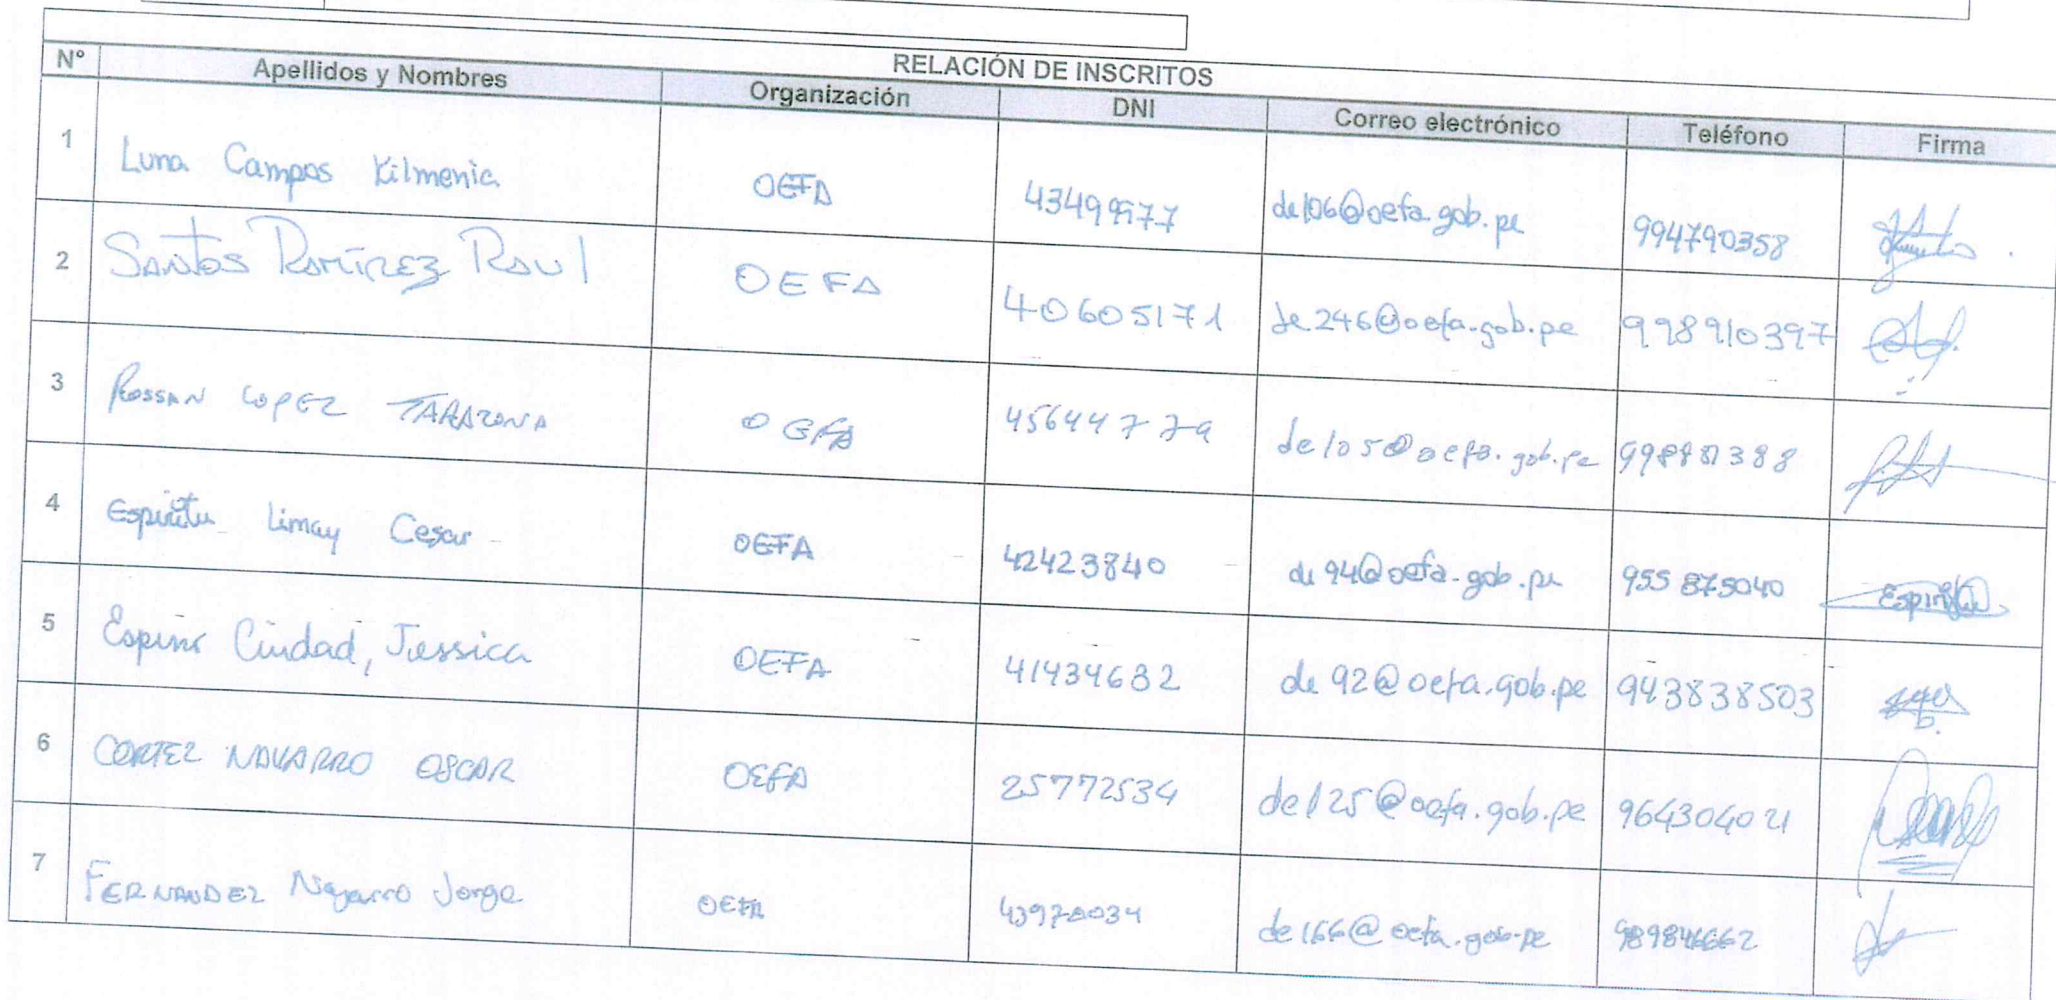 RELACIÓN DE INSCRITOS
N° Apellidos y Nombres Organización DNI Correo electrónico Teléfono Firma
1 Luna Campos Kilmenia OEFA 43499577 de106@oefa.gob.pe 994790358
2 Santos Ramírez Raul OEFA 40605171 de246@oefa.gob.pe 998910397
3 Rossan LOPEZ TARAZONA OEFA de105@oefa.gob.pe
4 Espiritu Limay Cesar OEFA 42423840 de94@oefa.gob.pe 955875040 Espiritu
5 Ciudad, Jessica OEFA 41434632 de92@oefa.gob.pe 943838503
6 CORTEZ NAVARRO OSCAR OEFA 25772534 de125@oefa.gob.pe 964304021
7 FERNANDEZ Navarro Jorge OEFA de166@oefa.gob.pe